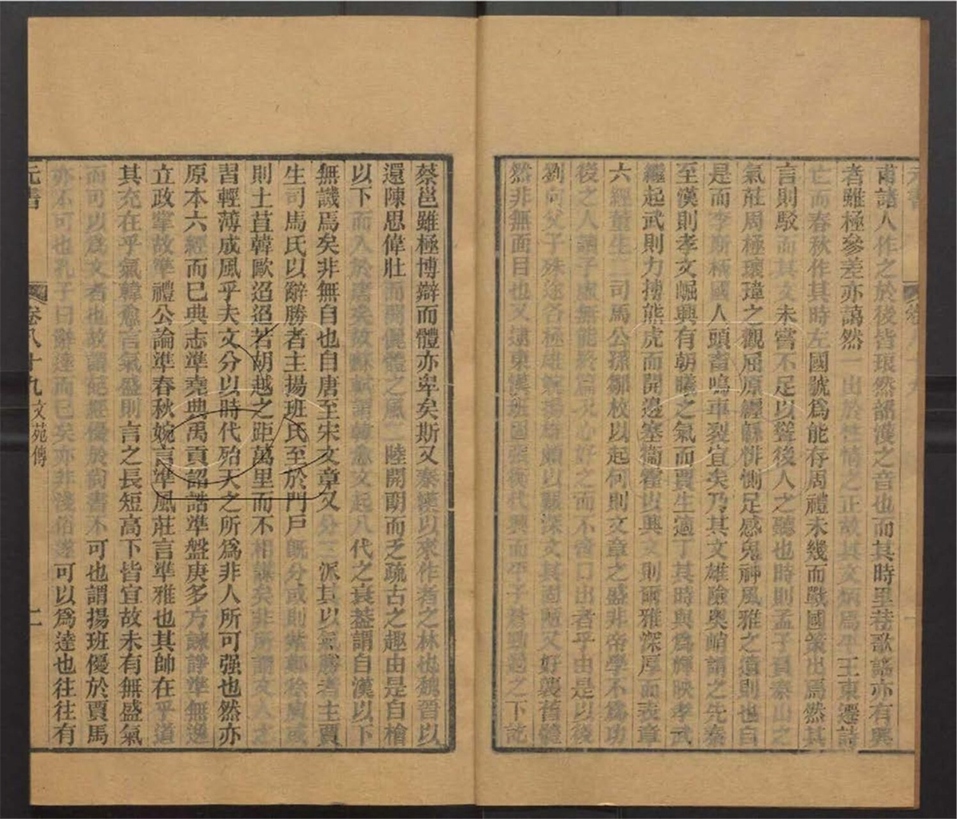 甫諸人作之於後皆琅然韶漢之音也而其時里巷歌謠亦有興
者雖極參差亦藹然出於性情之正故其文炳焉平王東遷詩
亡而春秋作其時左國號爲能存周禮未幾而戰國策出焉然其
言則駁而其文未嘗不足以聳後人之聽也時則孟子負泰山之
氣莊周極瓌瑋之觀屈原纒緜悱惻足感鬼神風雅之遺則也自
是而李斯稱國人頭畜鳴車裂宜矣乃其文雄險奥峭謂之先秦
至漢則孝文崛興有朝曦之氣而賈生適丁其時與爲輝映孝武
繼起武則力搏熊虎而開邊塞衞霍以興文則爾雅深厚而表章
六經董生二司馬公孫鄒枚以起何則文章之盛非帝學不爲功
後之人讀子虛無能終篇
心好之而不
口出者乎由是以後
劉向父子殊途各極雄
深文其
又好襲舊體
然非無面目也又遠東漢班固張衡代興而平子
之下訖
蔡邕雖極博辯而體亦卑矣斯又秦漢以來作者之林也魏晋以
還陳思偉壯而開儷體之風二陸開朗而乏疏古之趣由是自檜
以下而入於唐矣故蘇軾謂韓愈文起八代之衰葢謂自漢以下
無譏焉矣非無自也自唐至宋文章又分三派其以氣勝者主賈
生司馬氏以辭勝者主揚班氏至於門戶既分或則
或
則土苴韓歐迢迢若胡越之距萬里而不相謀矣非所謂文人之
習輕薄成風乎夫文分以時代殆天之所爲非人所可强也然亦
原本六經而已典志準堯典禹貢詔誥準盤庚多方諫諍準無逸
立政掌故準禮公論準春秋婉言準風莊言準雅也其帥在乎道
其充在乎氣韓愈言氣盛則言之長短高下皆宜故未有無盛氣
而可以爲文者也故謂
經優於
書不可也謂揚班優於賈馬
亦不可也孔子曰辭達而已矣亦非淺俗
可以爲達也往往有
元書
卷八十九文苑傳
二